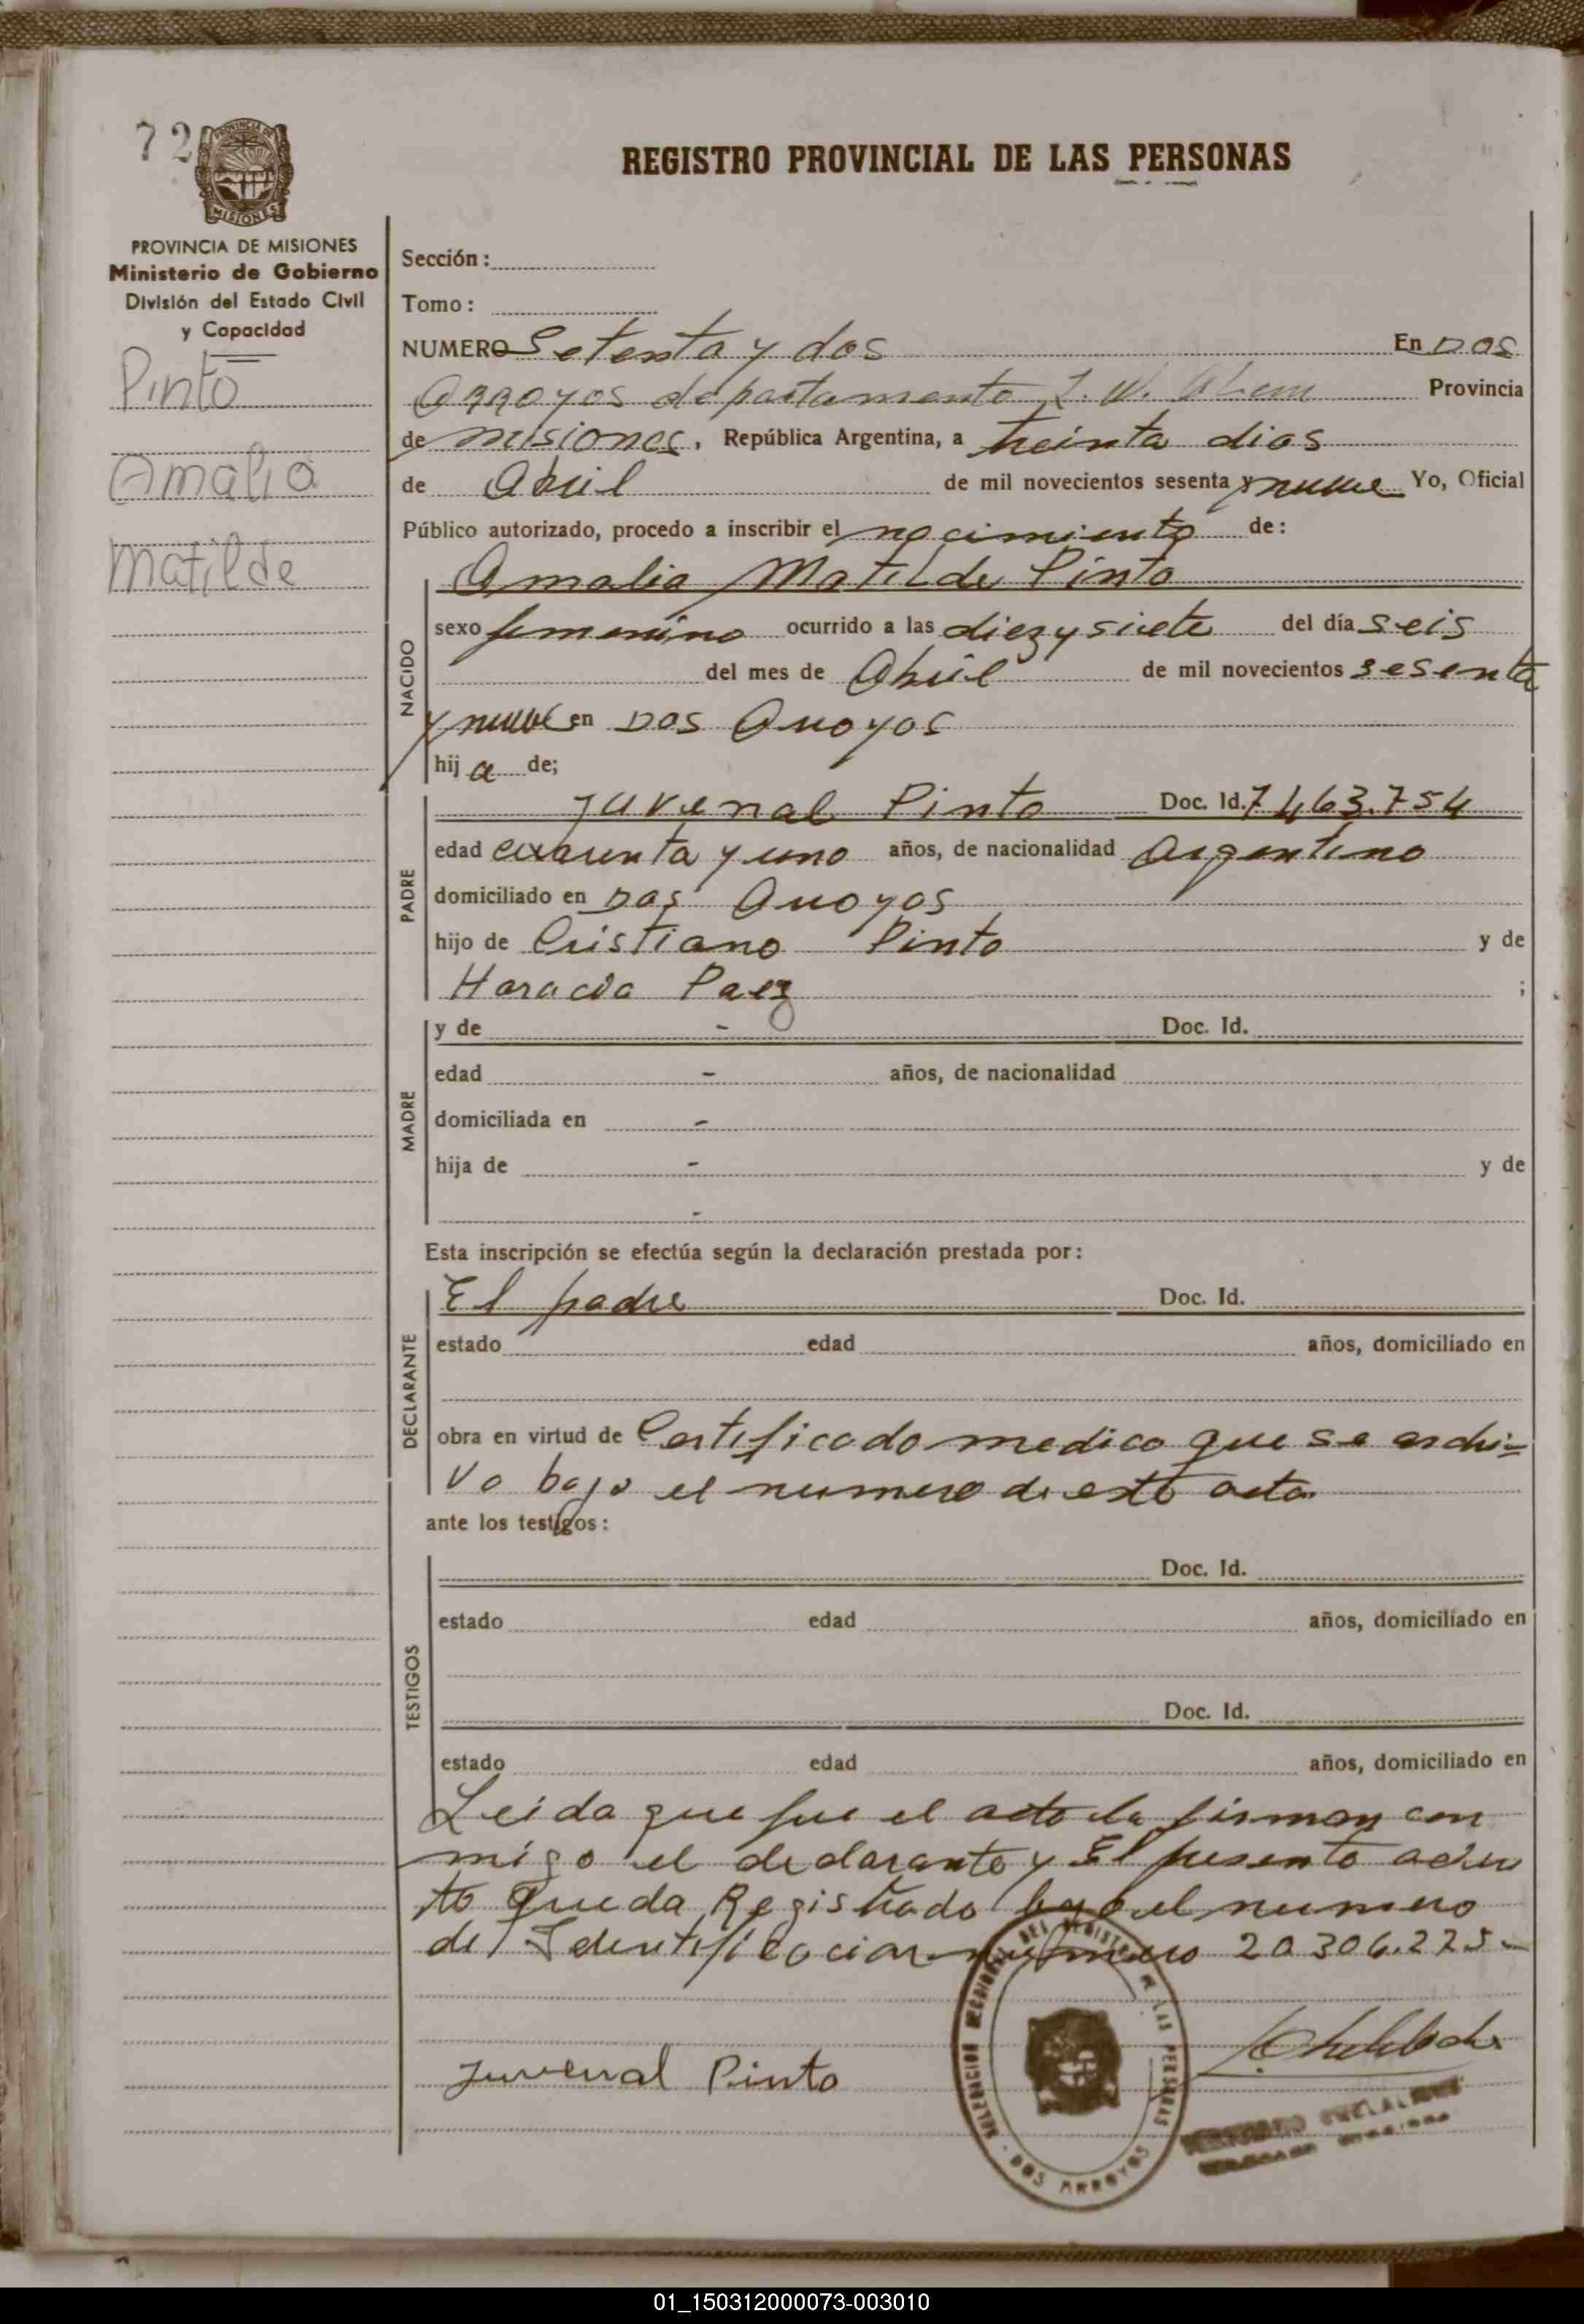 72
PROVINCIA DE
MISIONES
REGISTRO PROVINCIAL DE LAS PERSONAS
PROVINCIA DE MISIONES
Ministerio de Gobierno
División del Estado Civil
y Capacidad
Pinto
Amalia
Matilde
Sección:
Tomo:
NUMERO Setenta y dos En Dos
Arroyos departamento L. N. Alem Provincia
de misiones, República Argentina, a treinta dias
de Abril de mil novecientos sesenta y nueve Yo, Oficial
Público autorizado, procedo a inscribir el nacimiento de:
NACIDO
Amalia Matilde Pinto
sexo femenino ocurrido a las diez y siete del día seis
del mes de Abril de mil novecientos sesenta
y nueve en Dos Arroyos
hija de;
PADRE
Juvenal Pinto Doc. Id. 7463.754
edad cuarenta y uno años, de nacionalidad Argentino
domiciliado en Dos Arroyos
hijo de Cristiano Pinto y de
Horacia Paez ;
MADRE
y de - Doc. Id.
edad - años, de nacionalidad
domiciliada en -
hija de - y de
-
Esta inscripción se efectúa según la declaración prestada por:
DECLARANTE
El padre Doc. Id.
estado edad años, domiciliado en
obra en virtud de Certificado medico que se archi=
va bajo el numero de esta acta
ante los testigos:
TESTIGOS
Doc. Id.
estado edad años, domiciliado en
Doc. Id.
estado edad años, domiciliado en
Leida que fue el acta la firman con
migo el declarante y El presente
to queda Registrado bajo el numero
de Identificacion numero 20306.225.-
Juvenal Pinto
DELEGACION DEL REGISTRO DE LAS PERSONAS
DOS ARROYOS
01_150312000073-003010